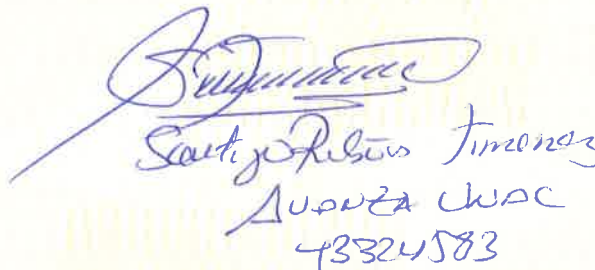 Santiago Rubio Jimenez
AVANZA UNAC
43324583